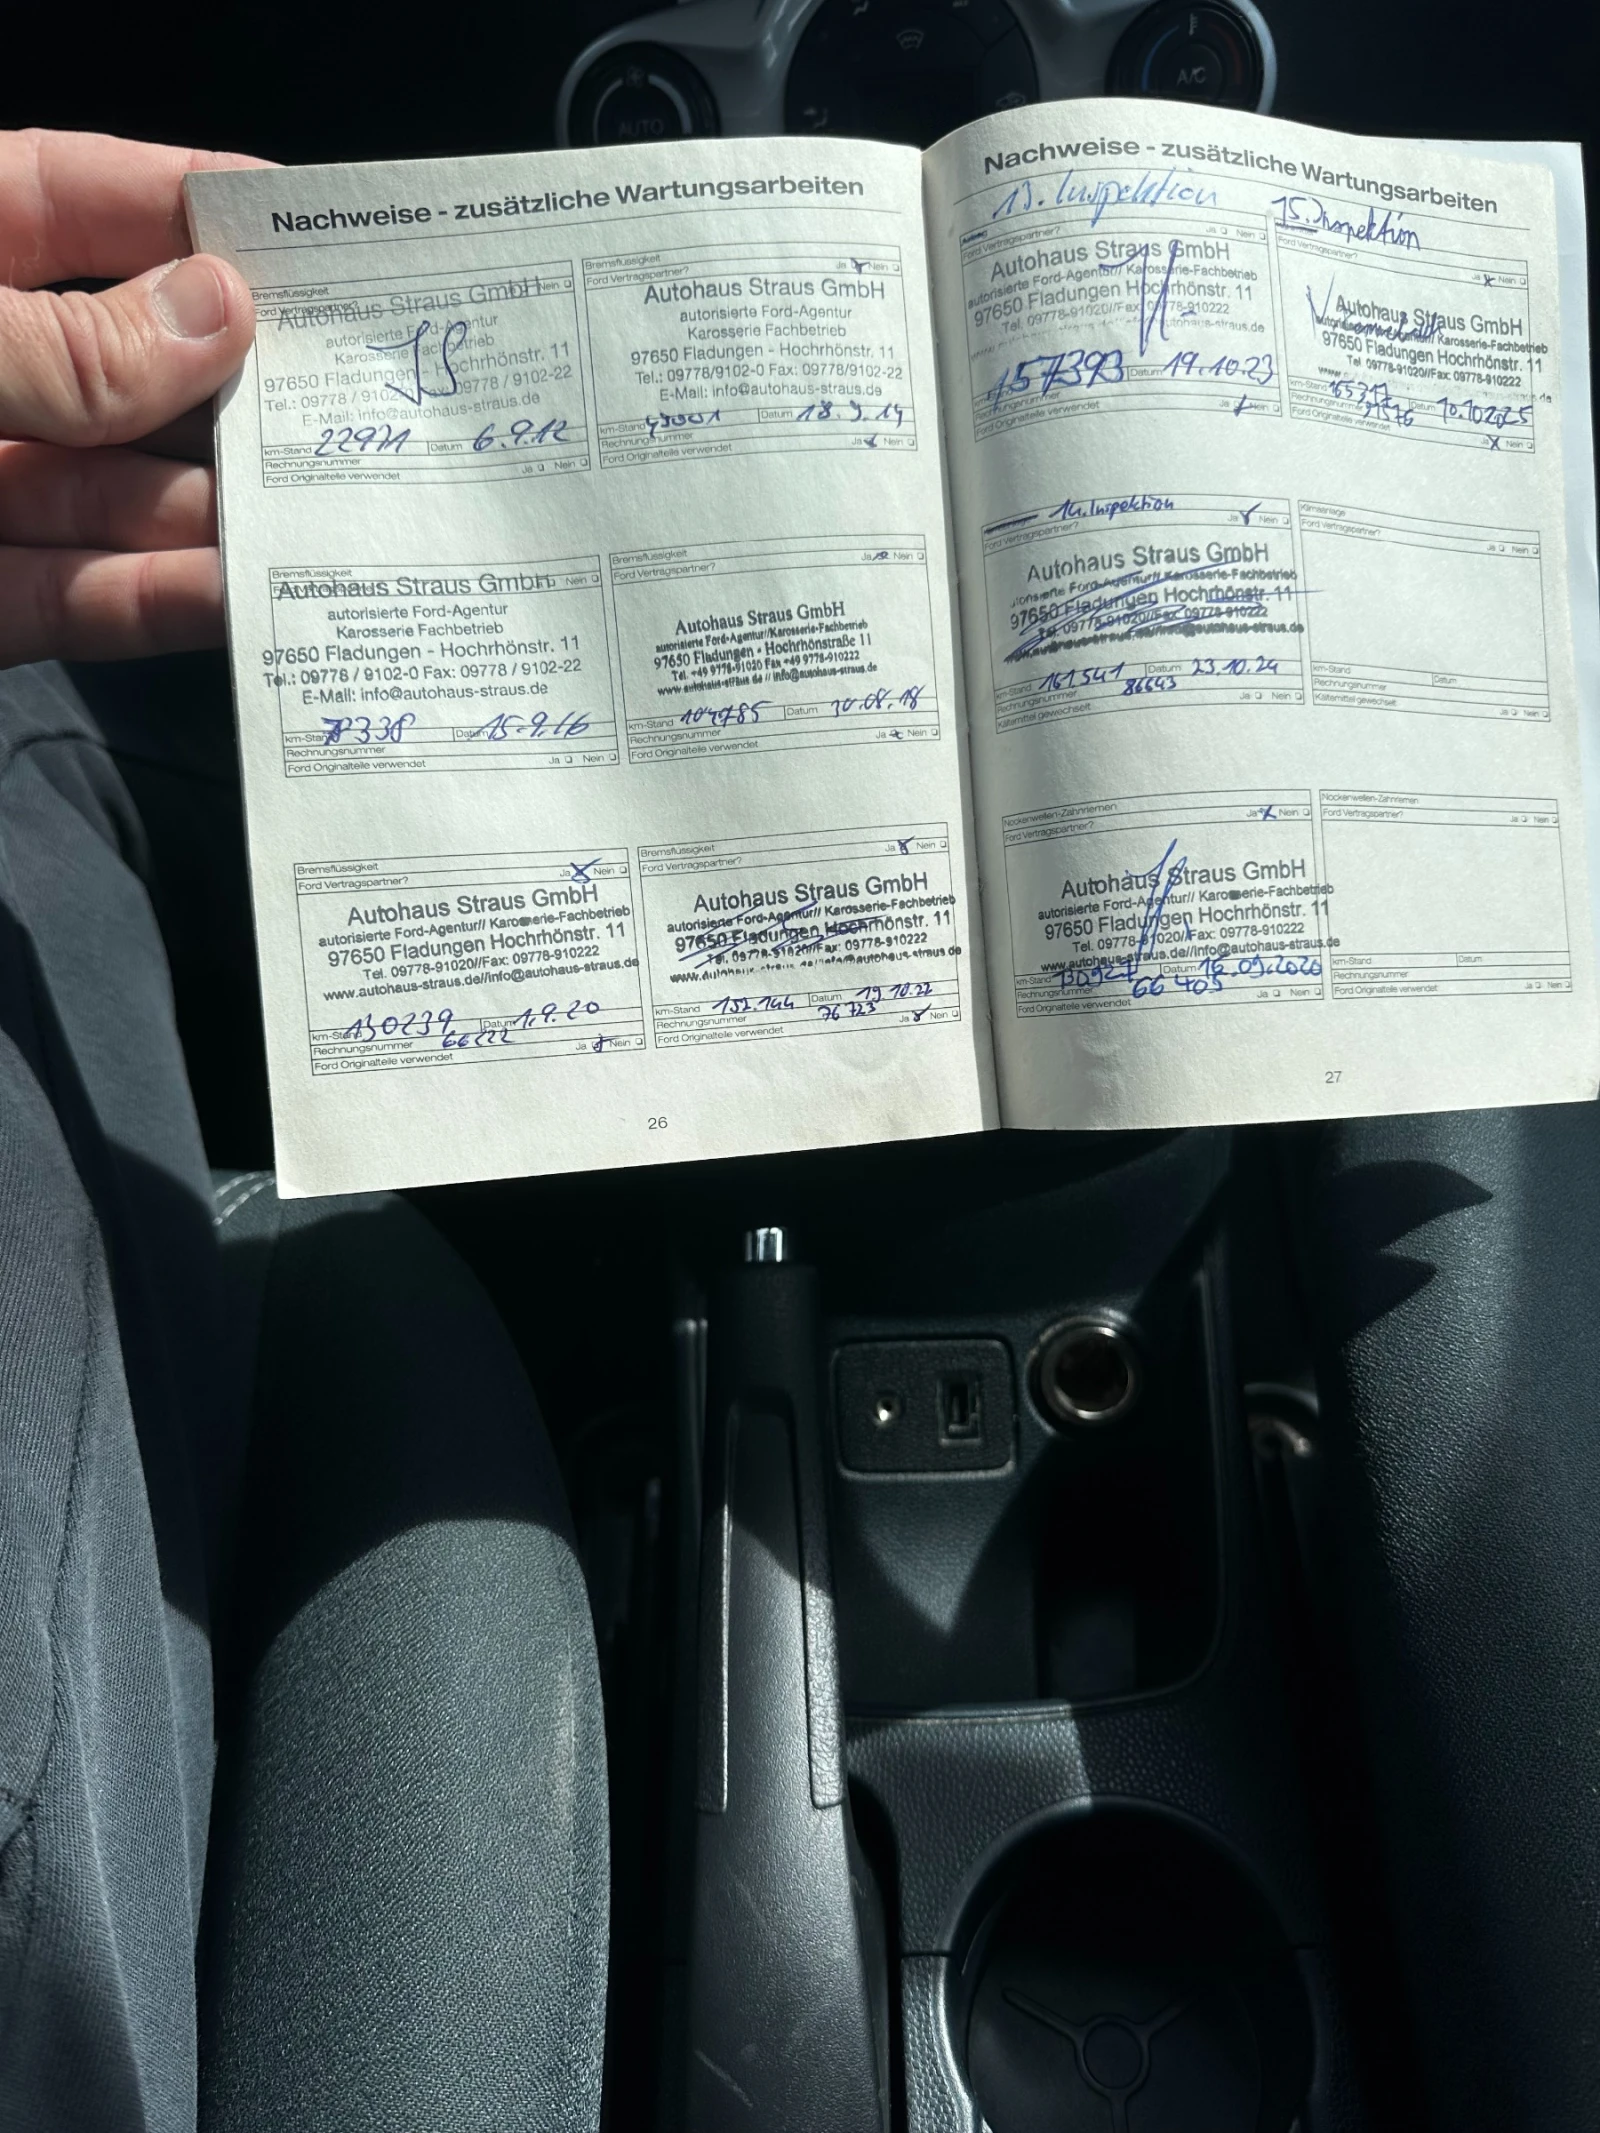 AUTO
A/C
Nachweise - zusätzliche Wartungsarbeiten
Bremsflüssigkeit
Ford Vertragspartner? Nein
Autohaus Straus GmbH
autorisierte Ford-Agentur
Karosserie Fachbetrieb
97650 Fladungen - Hochrhönstr. 11
Tel.: 09778 / 9102-0 Fax: 09778 / 9102-22
E-Mail: info@autohaus-straus.de
km-Stand 22971 Datum 6.9.12
Rechnungsnummer
Ford Originalteile verwendet Ja Nein
Bremsflüssigkeit
Ford Vertragspartner? Ja Nein
Autohaus Straus GmbH
autorisierte Ford-Agentur
Karosserie Fachbetrieb
97650 Fladungen - Hochrhönstr. 11
Tel.: 09778/9102-0 Fax: 09778/9102-22
E-Mail: info@autohaus-straus.de
km-Stand Datum 18.9.14
Rechnungsnummer
Ford Originalteile verwendet Ja Nein
Bremsflüssigkeit
Nein
Autohaus Straus GmbH
autorisierte Ford-Agentur
Karosserie Fachbetrieb
97650 Fladungen - Hochrhönstr. 11
Tel.: 09778 / 9102-0 Fax: 09778 / 9102-22
E-Mail: info@autohaus-straus.de
km-Stand 78338 Datum 15.9.16
Rechnungsnummer
Ford Originalteile verwendet Ja Nein
Bremsflüssigkeit
Ford Vertragspartner? Ja Nein
Autohaus Straus GmbH
autorisierte Ford-Agentur//Karosserie-Fachbetrieb
97650 Fladungen • Hochrhönstraße 11
Tel. +49 9778-91020 Fax +49 9778-910222
www.autohaus-straus.de // info@autohaus-straus.de
km-Stand 104785 Datum 30.08.18
Rechnungsnummer
Ford Originalteile verwendet Ja Nein
Bremsflüssigkeit
Ford Vertragspartner? Ja Nein
Autohaus Straus GmbH
autorisierte Ford-Agentur// Karosserie-Fachbetrieb
97650 Fladungen Hochrhönstr. 11
Tel. 09778-91020//Fax: 09778-910222
www.autohaus-straus.de//info@autohaus-straus.de
km-Stand 130239 Datum 1.9.20
Rechnungsnummer 66222
Ford Originalteile verwendet Ja Nein
Bremsflüssigkeit
Ford Vertragspartner? Ja Nein
Autohaus Straus GmbH
autorisierte Ford-Agentur// Karosserie-Fachbetrieb
97650 Fladungen Hochrhönstr. 11
Tel. 09778-91020//Fax: 09778-910222
km-Stand 152.144 Datum 19.10.22
Rechnungsnummer 76723
Ford Originalteile verwendet Ja Nein
26
Nachweise - zusätzliche Wartungsarbeiten
13. Inspektion
Ford Vertragspartner? Ja Nein
Autohaus Straus GmbH
autorisierte Ford-Agentur// Karosserie-Fachbetrieb
97650 Fladungen Hochrhönstr. 11
Tel. 09778-91020//Fax: 09778-910222
157393 Datum 19.10.23
Rechnungsnummer
Ford Originalteile verwendet Ja Nein
15. Inspektion
Ford Vertragspartner?
Ja Nein
Autohaus Straus GmbH
Karosserie-Fachbetrieb
97650 Fladungen Hochrhönstr. 11
Tel. 09778-91020//Fax: 09778-910222
km-Stand 165317 Datum 10.10.2025
Rechnungsnummer 91576
Ford Originalteile verwendet
Ja Nein
14. Inspektion
Ford Vertragspartner? Ja Nein
Autohaus Straus GmbH
autorisierte Ford-Agentur// Karosserie-Fachbetrieb
97650 Fladungen Hochrhönstr. 11
Tel. 09778-91020//Fax: 09778-910222
km-Stand 161541 Datum 23.10.24
Rechnungsnummer 86643
Kältemittel gewechselt Ja Nein
Klimaanlage
Ford Vertragspartner?
Ja Nein
km-Stand Datum
Rechnungsnummer
Kältemittel gewechselt
Ja Nein
Nockenwellen-Zahnriemen
Ford Vertragspartner? Ja Nein
Autohaus Straus GmbH
autorisierte Ford-Agentur// Karosserie-Fachbetrieb
97650 Fladungen Hochrhönstr. 11
Tel. 09778-91020//Fax: 09778-910222
www.autohaus-straus.de//info@autohaus-straus.de
km-Stand 130927 Datum 16.09.2020
Rechnungsnummer 66405
Ford Originalteile verwendet Ja Nein
Nockenwellen-Zahnriemen
Ford Vertragspartner? Ja Nein
km-Stand Datum
Rechnungsnummer
Ford Originalteile verwendet Ja Nein
27